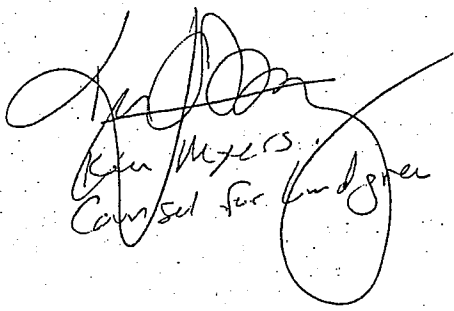 Ken Myers
Counsel for Lundgren